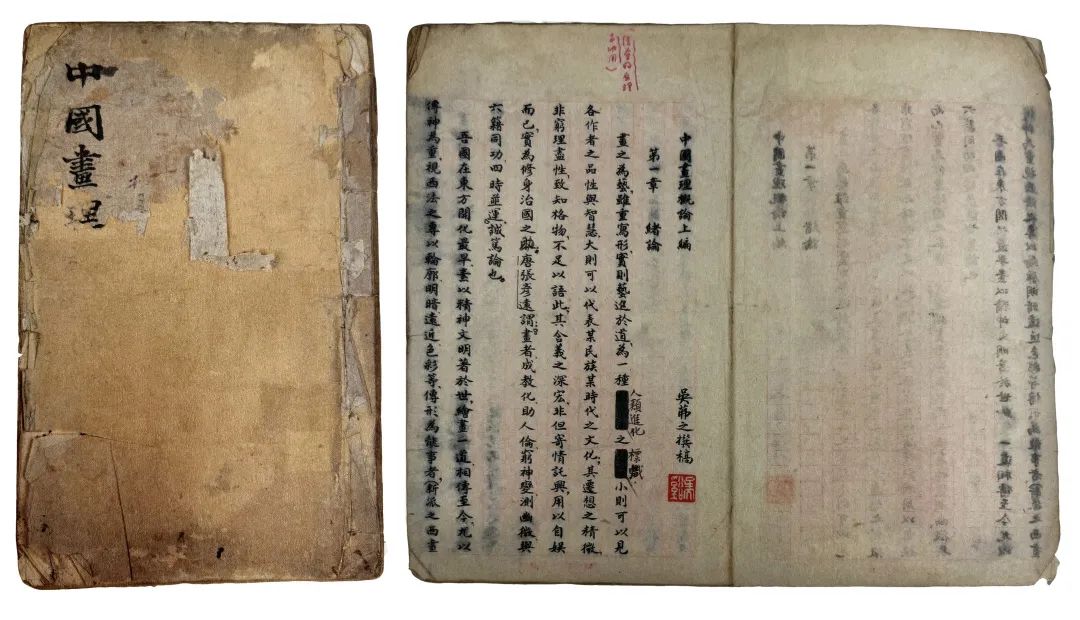 中國畫理
中國畫理概論上編
吳茀之撰稿
第一章 緒論
畫之為藝,雖重寫形,實則藝進於道,為一種人類進化之標幟,小則可以見
各作者之品性與智慧,大則可以代表某民族某時代之文化,其遷想之精微,
非窮理盡性,致知格物,不足以語此,其含義之深宏,非但寄情託興,用以自娛
而已,實為修身治國之助,唐張彥遠謂:畫者成教化,助人倫,窮神變,測幽微,與
六籍同功,四時並運,誠篤論也。
吾國在東方開化最早,素以精神文明著於世,繪畫一道,相傳至今,尤以
傳神為重,視西法之專以輪廓明暗遠近色彩等,傳形為能事者,新派之西畫